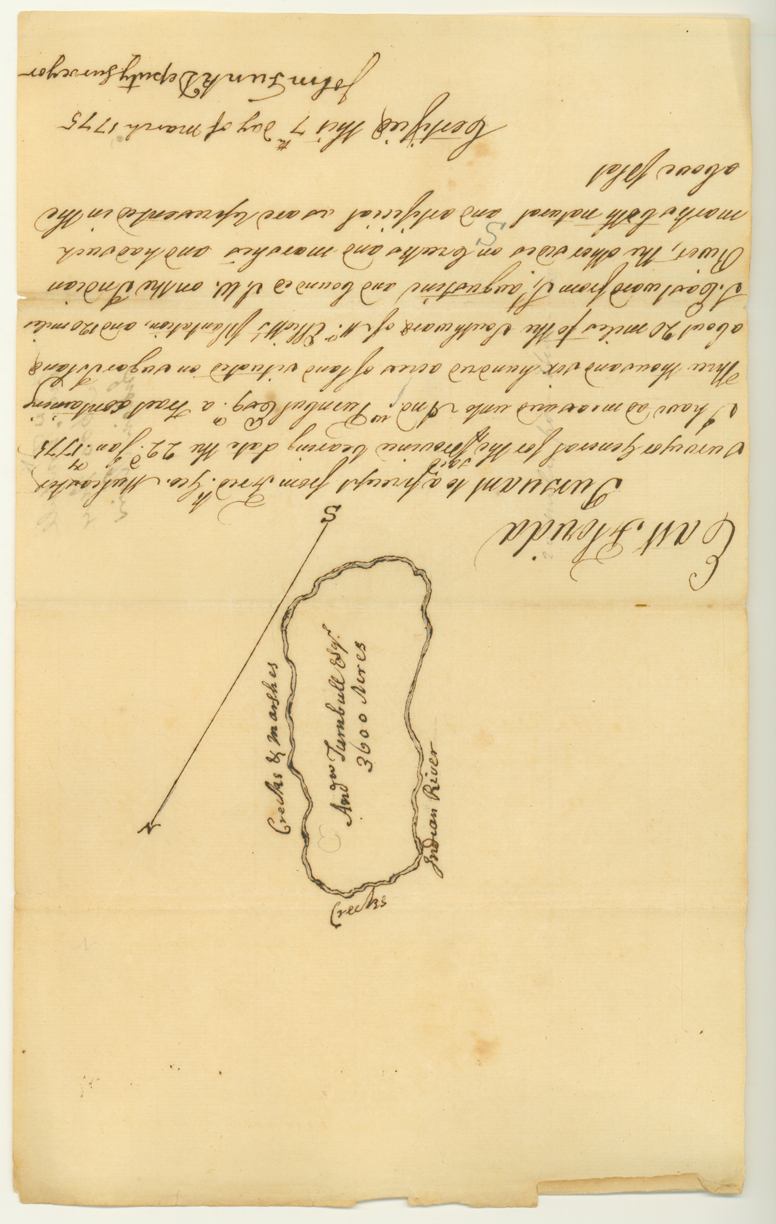 Creeks & Marshes
Andw Turnbull Esqr.
3600 Acres
Indian River
Creeks
N
S
East Florida
Pursuant to a precept from Fredk. Geo. Mulcaster
Surveyor General for the said Province bearing date the 22d. of Jan. 1775
I have admeasured unto Andw. Turnbull Esq. a Tract containing
Three thousand six hundred acres of land situated on sugar Island
about 20 miles to the Southward of Mr. Elliott's Plantation, and 120 miles
S. Eastward from St. augustine and bounded S.W. on the Indian
River, the other sides on Creeks and marshes and had such
marks both natural and artificial as are represented in the
above plat
Certified this 7th day of march 1775
John Funk Deputy surveyor